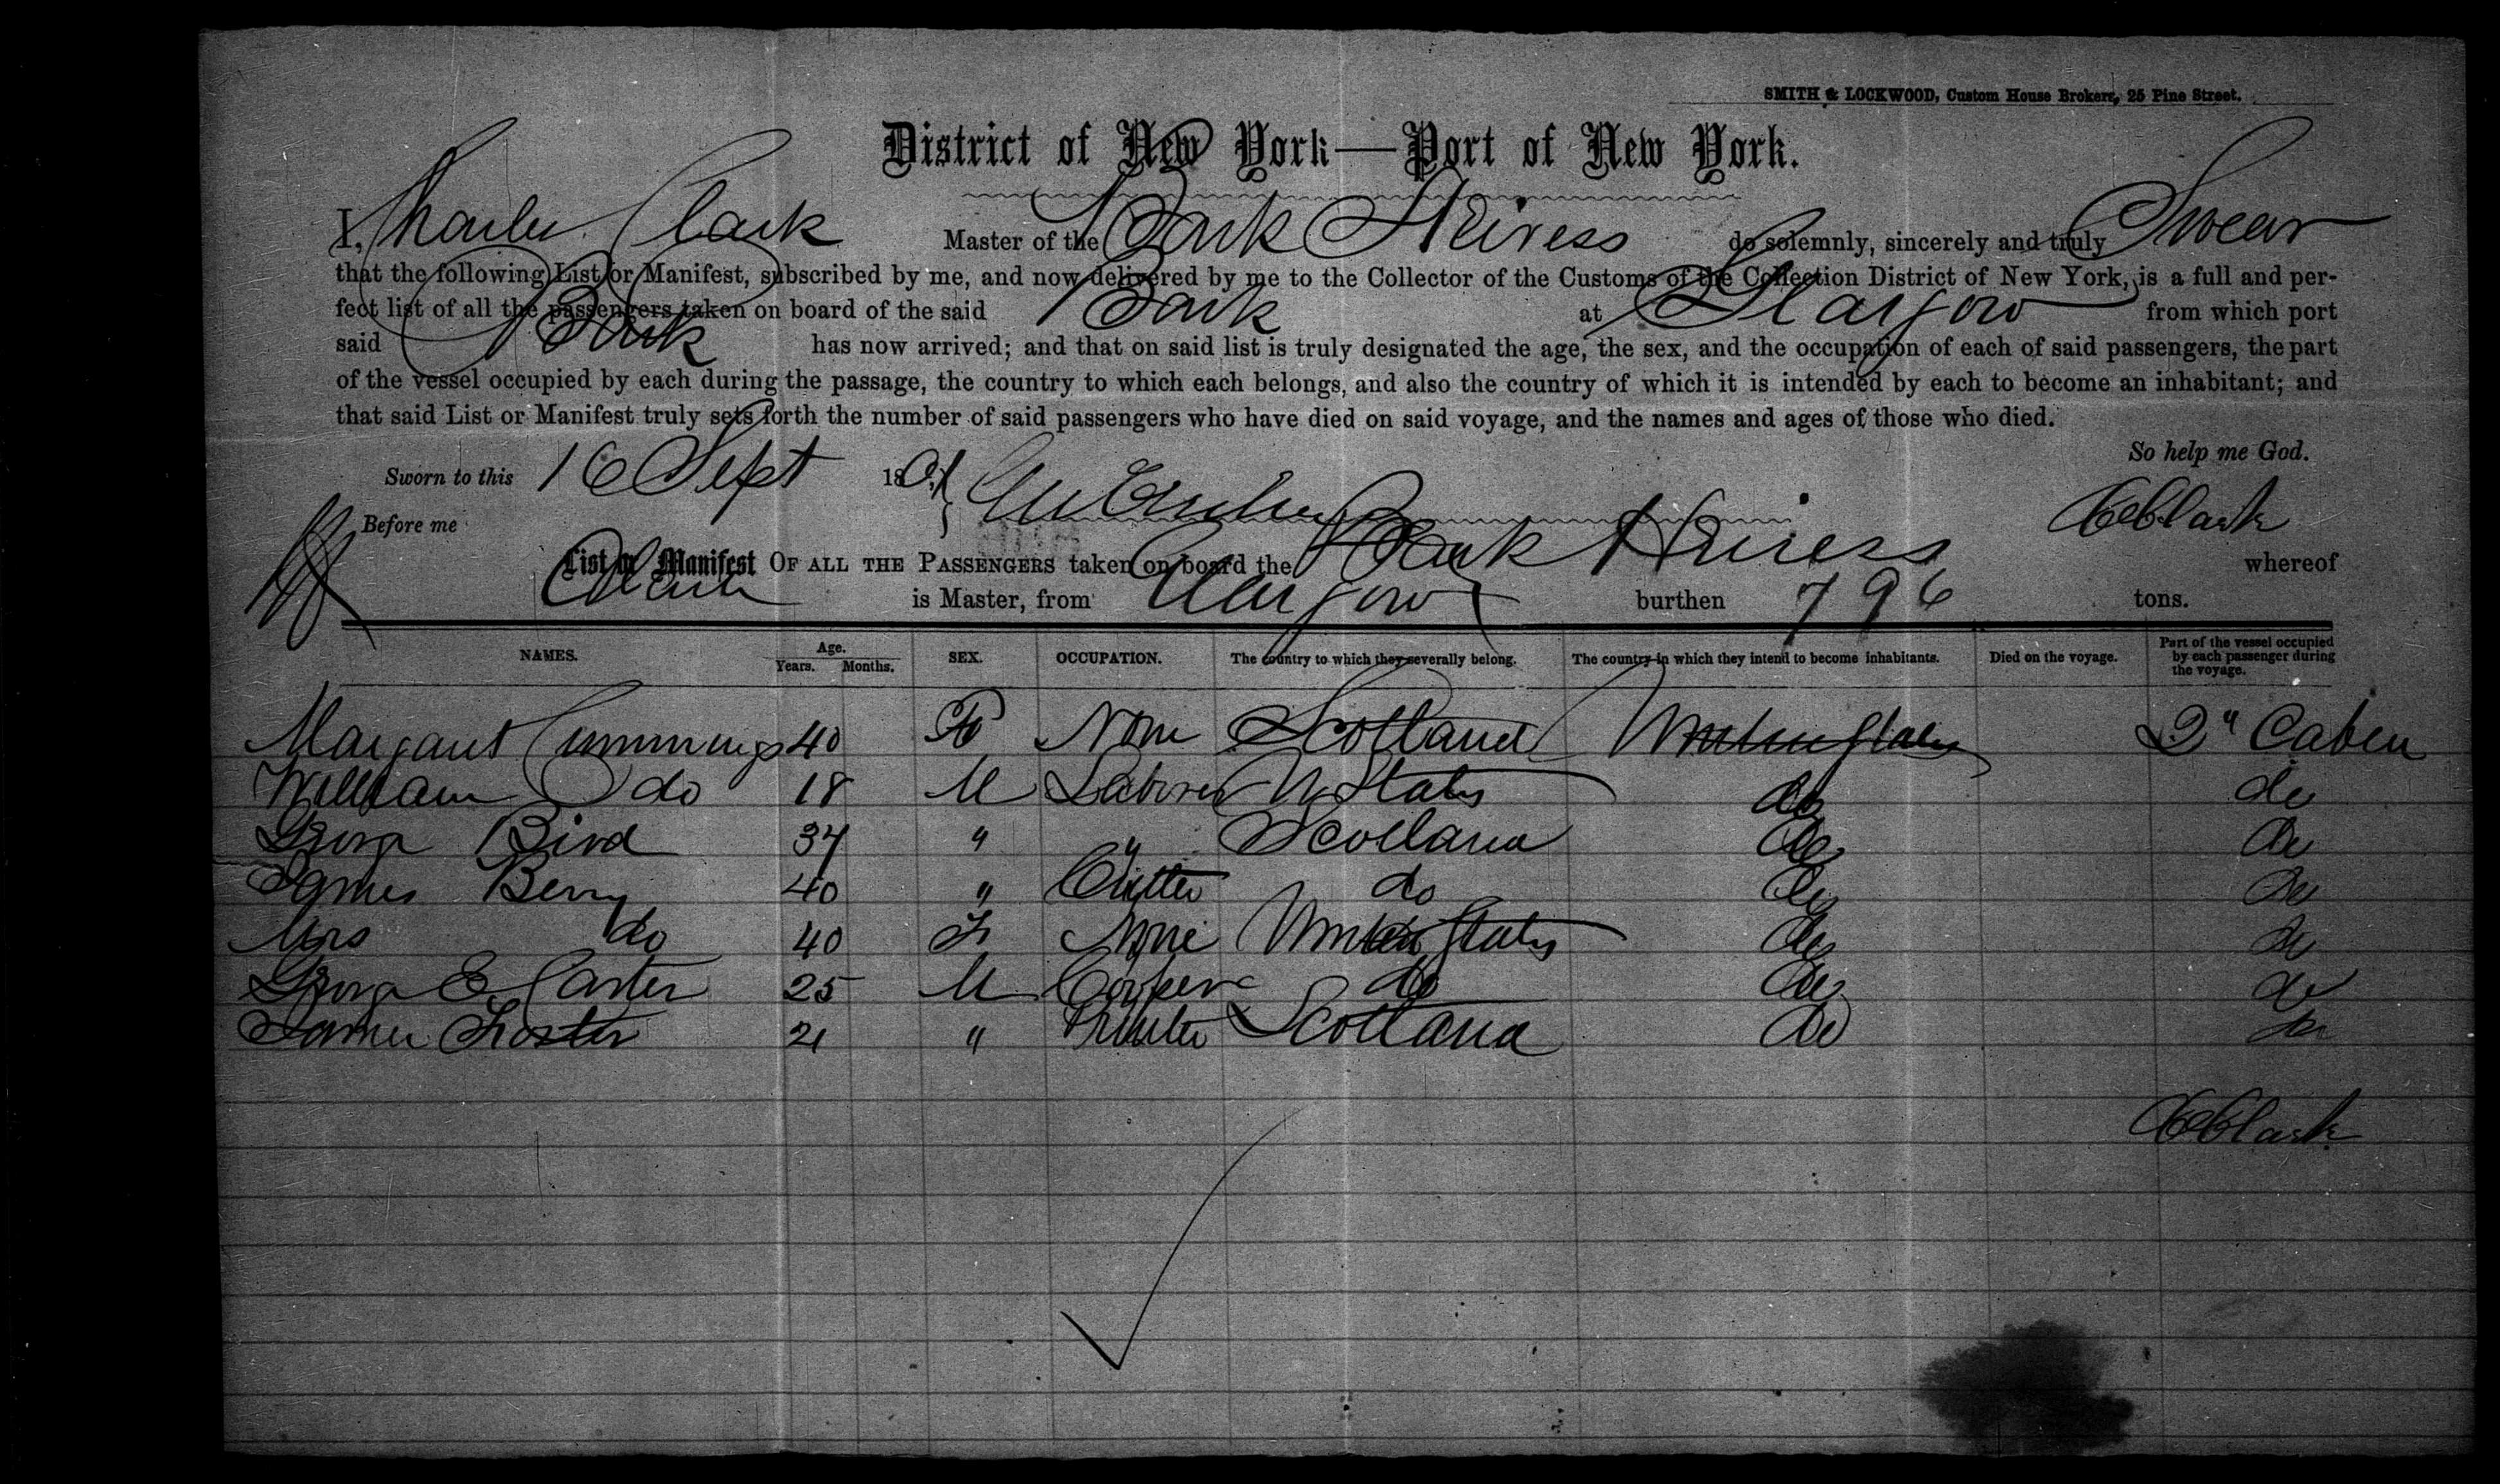 SMITH & LOCKWOOD, Custom House Brokers, 25 Pine Street.
District of New York—Port of New York.
I, Charles Clark Master of the Bark Heiress do solemnly, sincerely and truly Swear
that the following List or Manifest, subscribed by me, and now delivered by me to the Collector of the Customs of the Collection District of New York, is a full and per-
fect list of all the passengers taken on board of the said Bark at Glasgow from which port
said Bark has now arrived; and that on said list is truly designated the age, the sex, and the occupation of each of said passengers, the part
of the vessel occupied by each during the passage, the country to which each belongs, and also the country of which it is intended by each to become an inhabitant; and
that said List or Manifest truly sets forth the number of said passengers who have died on said voyage, and the names and ages of those who died.
So help me God.
Sworn to this 16 Sept 18
Before me CClark
List or Manifest OF ALL THE PASSENGERS taken on board the Bark Heiress whereof
Clark is Master, from Glasgow burthen 796 tons.
NAMES. Age. Years. Months. SEX. OCCUPATION. The country to which they severally belong. The country in which they intend to become inhabitants. Died on the voyage. Part of the vessel occupied by each passenger during the voyage.
Margaret Cummings 40 F None Scotland United States 2" Cabin
William do 18 M Laborer U States do do
George Bird 34 " " Scotland do do
James Berry 40 " Cutter do do do
Mrs do 40 F None United States do do
George E Carter 25 M do do do
James Foster 21 " Printer Scotland do do
CClark